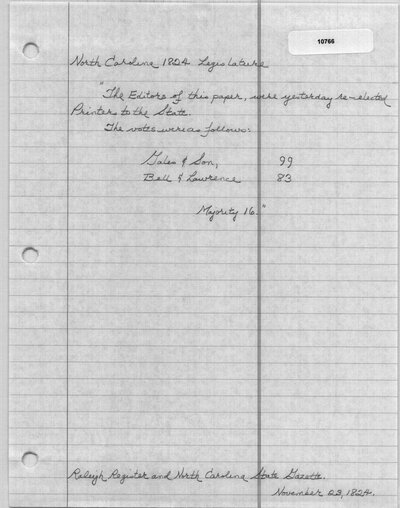 10766
North Carolina 1824 Legislature
"The Editors of this paper, were yesterday re-elected
Printers to the State.
The votes were as follows:
Gales & Son, 99
Bell & Lawrence 83
Majority 16."
Raleigh Register and North Carolina State Gazette.
November 23, 1824.